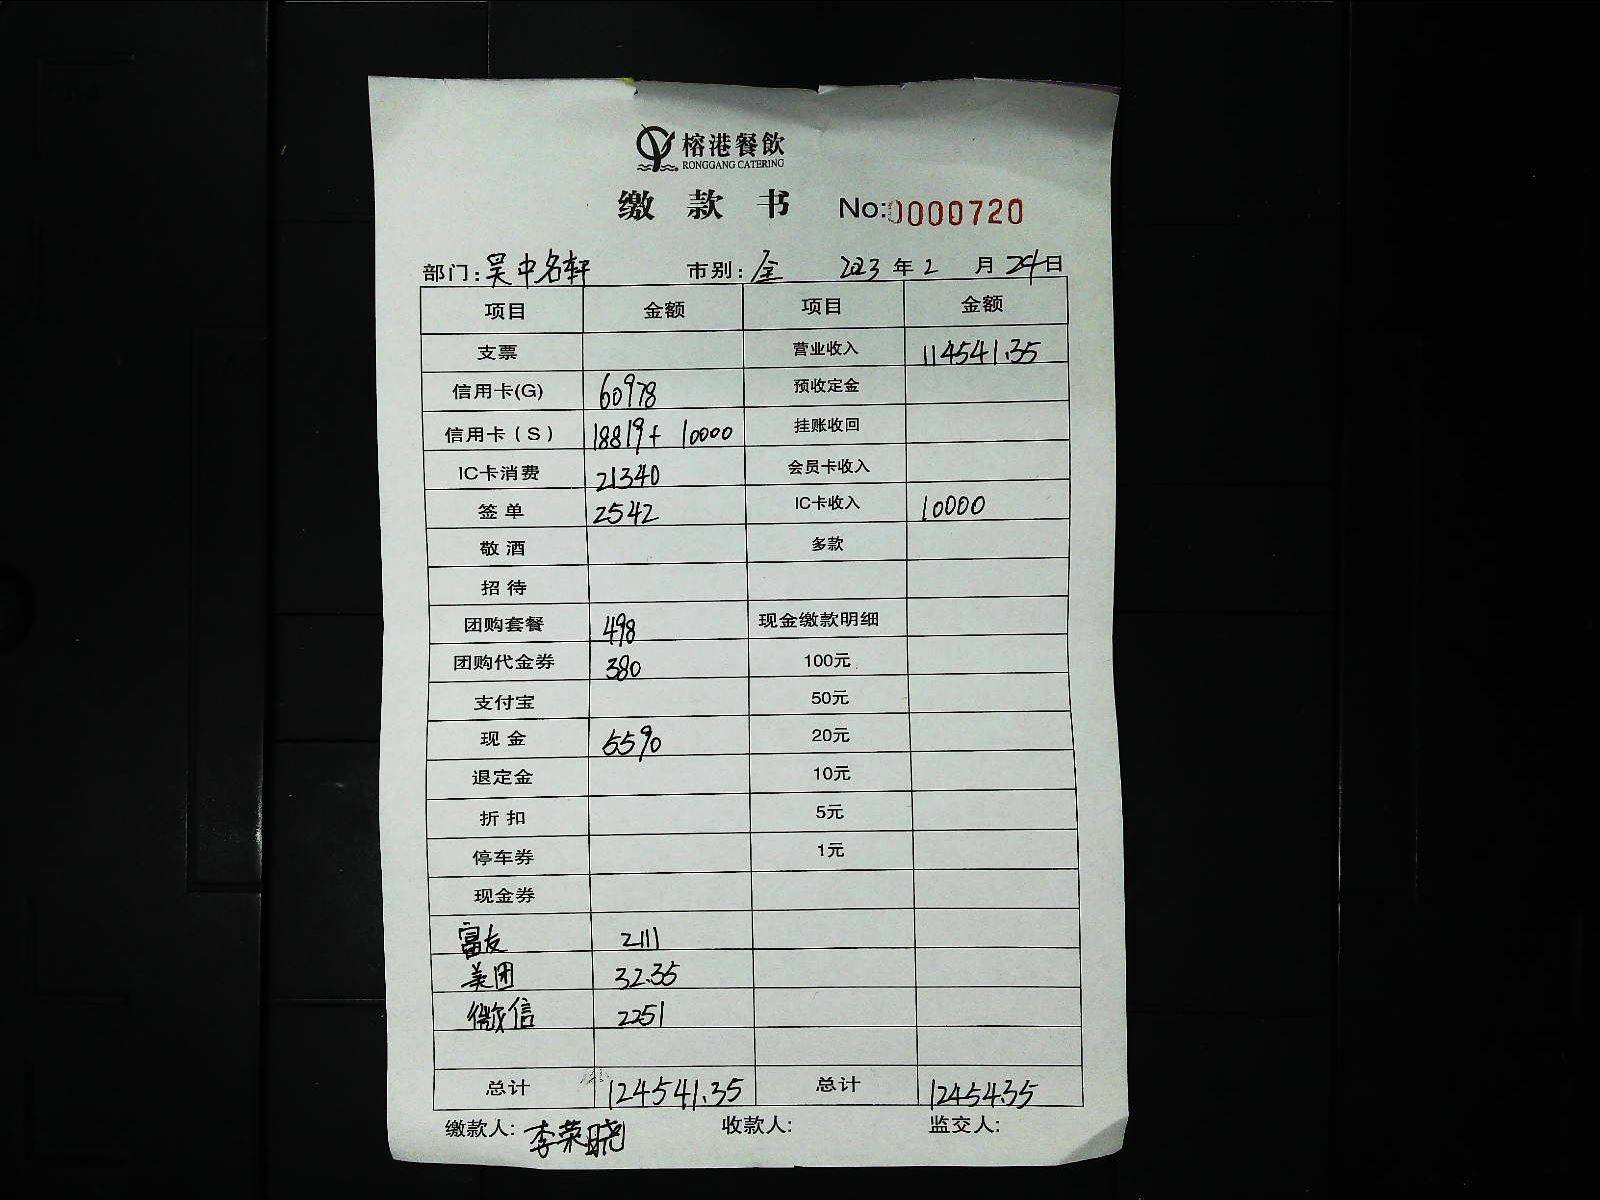 榕港餐飲
RONGGANG CATERING
缴款书 No:0000720
部门:吴中名轩 市别:全 2023年2月24日
项目 金额 项目 金额
支票 营业收入 114541.35
信用卡(G) 60978 预收定金
信用卡(S) 18819+10000 挂账收回
IC卡消费 21340 会员卡收入
签单 2542 IC卡收入 10000
敬酒 多款
招待
团购套餐 498 现金缴款明细
团购代金券 380 100元
支付宝 50元
现金 5590 20元
退定金 10元
折扣 5元
停车券 1元
现金券
富友 2111
美团 32.35
微信 2251
总计 124541.35 总计 12454.35
缴款人:李荣晓 收款人: 监交人: